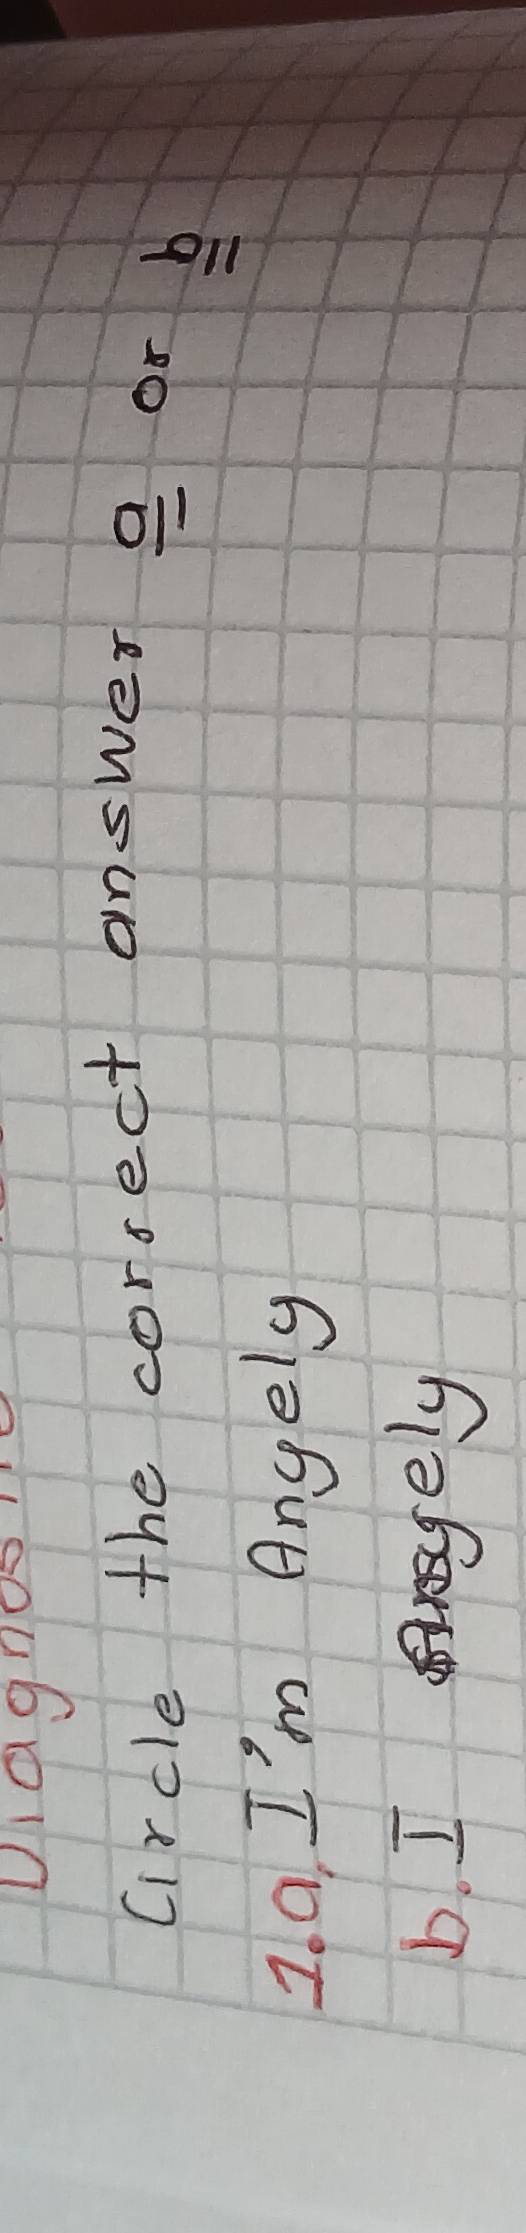 Diagnostic
Circle the correct answer a or b
1.a. I'm Angely
b. I Angely